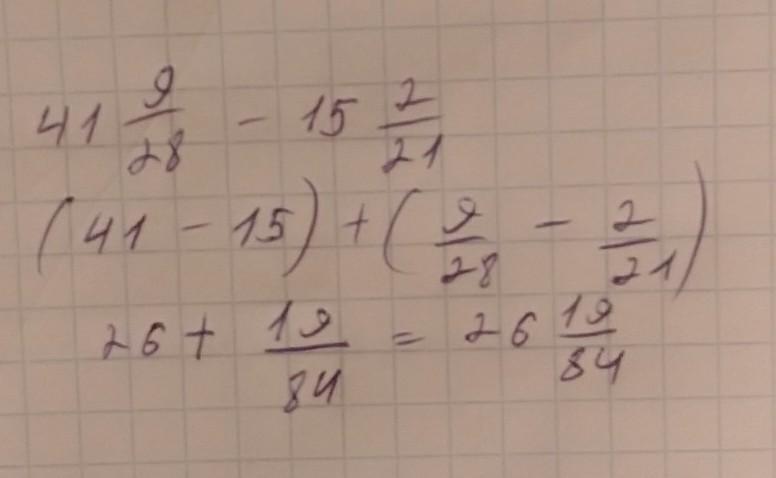 41 9/28 - 15 2/21
(41 - 15) + (9/28 - 2/21)
26 + 19/84 = 26 19/84